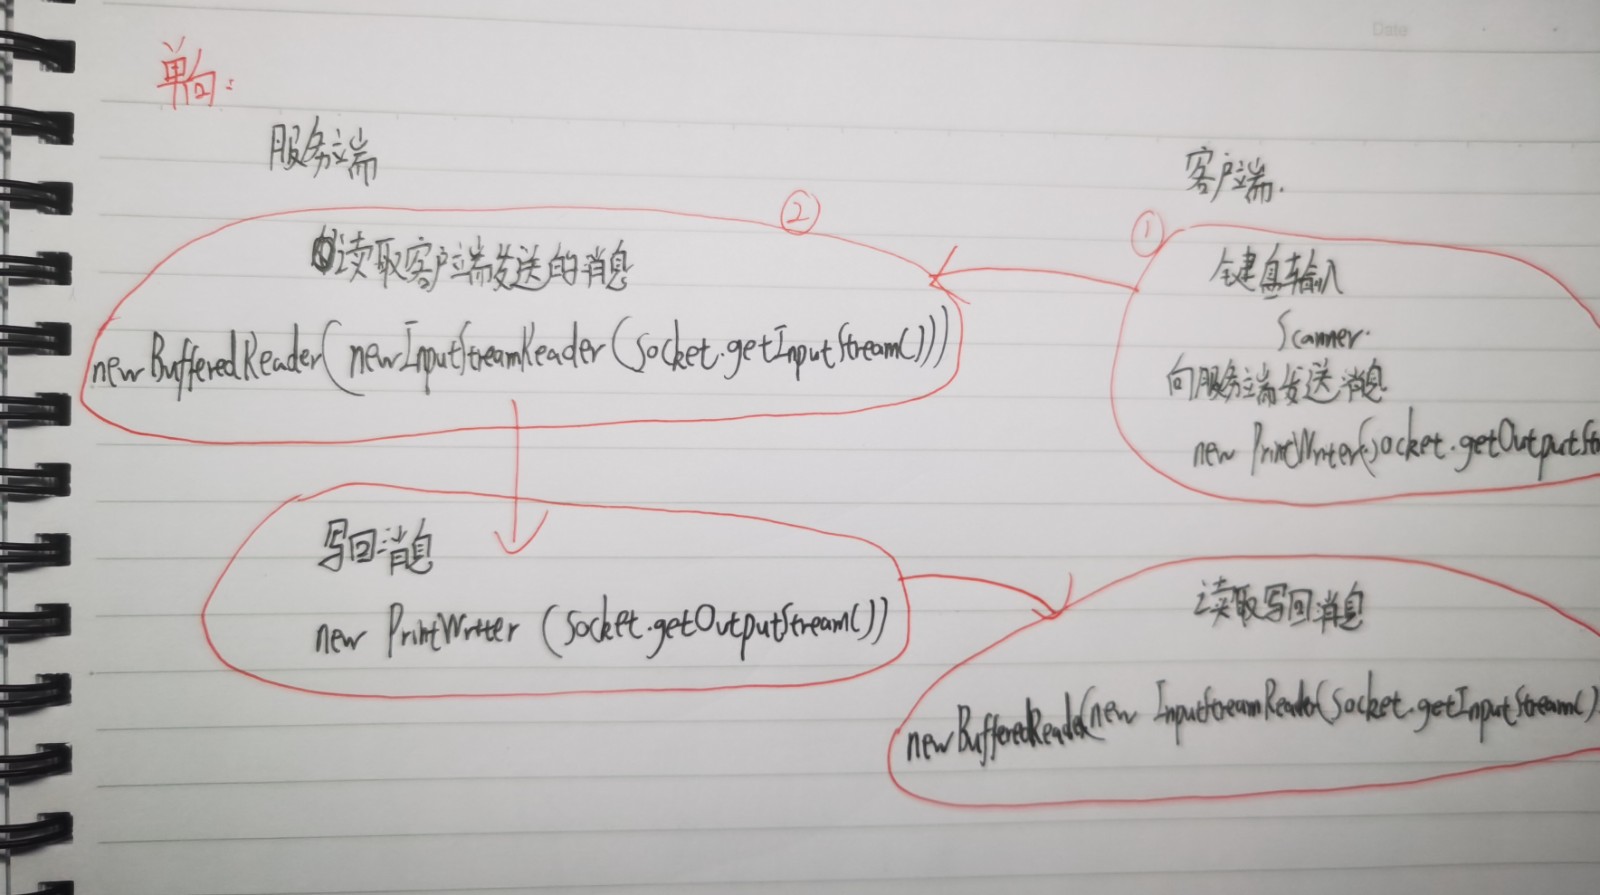 Date
单向:
服务端
客户端.
②
①
读取客户端发送的消息
new BufferedReader(new InputStreamReader(socket.getInputStream()))
键盘输入
Scanner.
向服务端发送消息
new PrintWriter(socket.getOutputStr
写回消息
new PrintWriter (socket.getOutputStream())
读取写回消息
new BufferedReader(new InputStreamReader(socket.getInputStream()